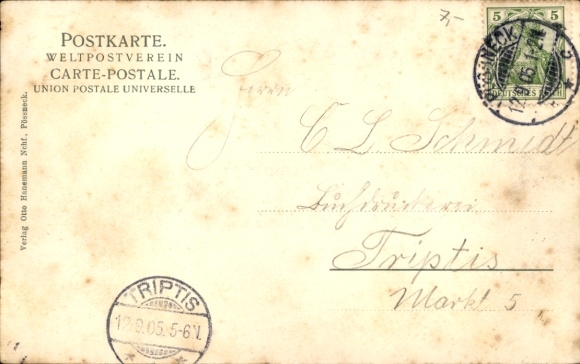 7,-
POSTKARTE.
WELTPOSTVEREIN
CARTE-POSTALE.
UNION POSTALE UNIVERSELLE
5 5
DEUTSCHES REICH
PÖSSNECK
Herrn
C L Schmidt
Buchdruckerei
Triptis
Markt 5
Verlag Otto Hanemann Nchf., Pössneck.
TRIPTIS
12.9.05. 5-6N.